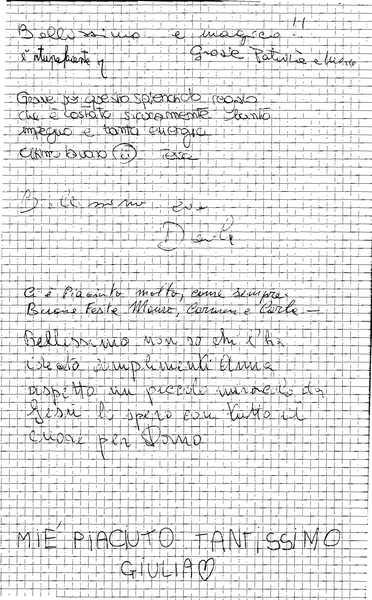 Bellissimo e magico!!
Grazie Patrizia e Mirco
Grazie per questo splendido regalo
che è costato sicuramente tanto
impegno e tanta energia
Bellissimo
C'è Piaciuto molto, come sempre.
Buone Feste Mauro, Carmen e Carla –
Bellissimo non so chi l'ha
ideato complimenti Anna
aspetto un piccolo miracolo da
Gesù lo spero con tutto il
cuore per
MI È PIACIUTO TANTISSIMO
GIULIA♡